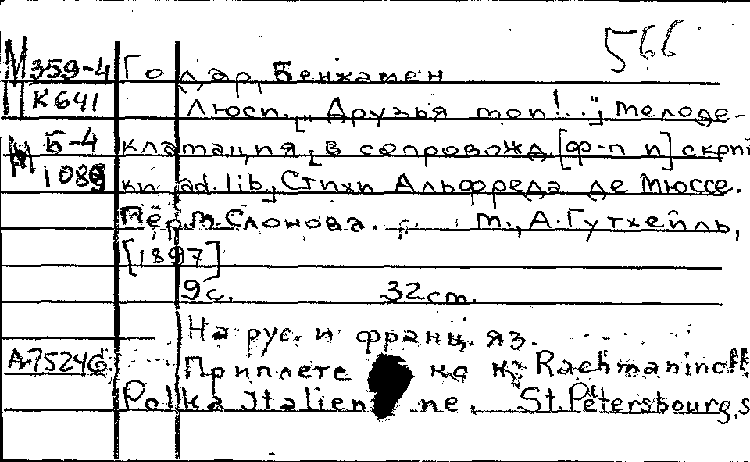 566
М 359-4 Годар, Бенжамен
К 641 Люси. „Друзья мои!..“; Мелоде-
М Б-4 кламация [в сопровожд. [ф-п и] скрип
1089 ки ad. lib.] Стихи Альфреда де Мюссе.
Пер. М. Слонова. М., А. Гутхейль,
[1897]
9 с. 32 cm.
На рус. и франц. яз.
А-75246 Приплетено к: Rachmaninoff,
Polka Italienne. St. Pétersbourg, s